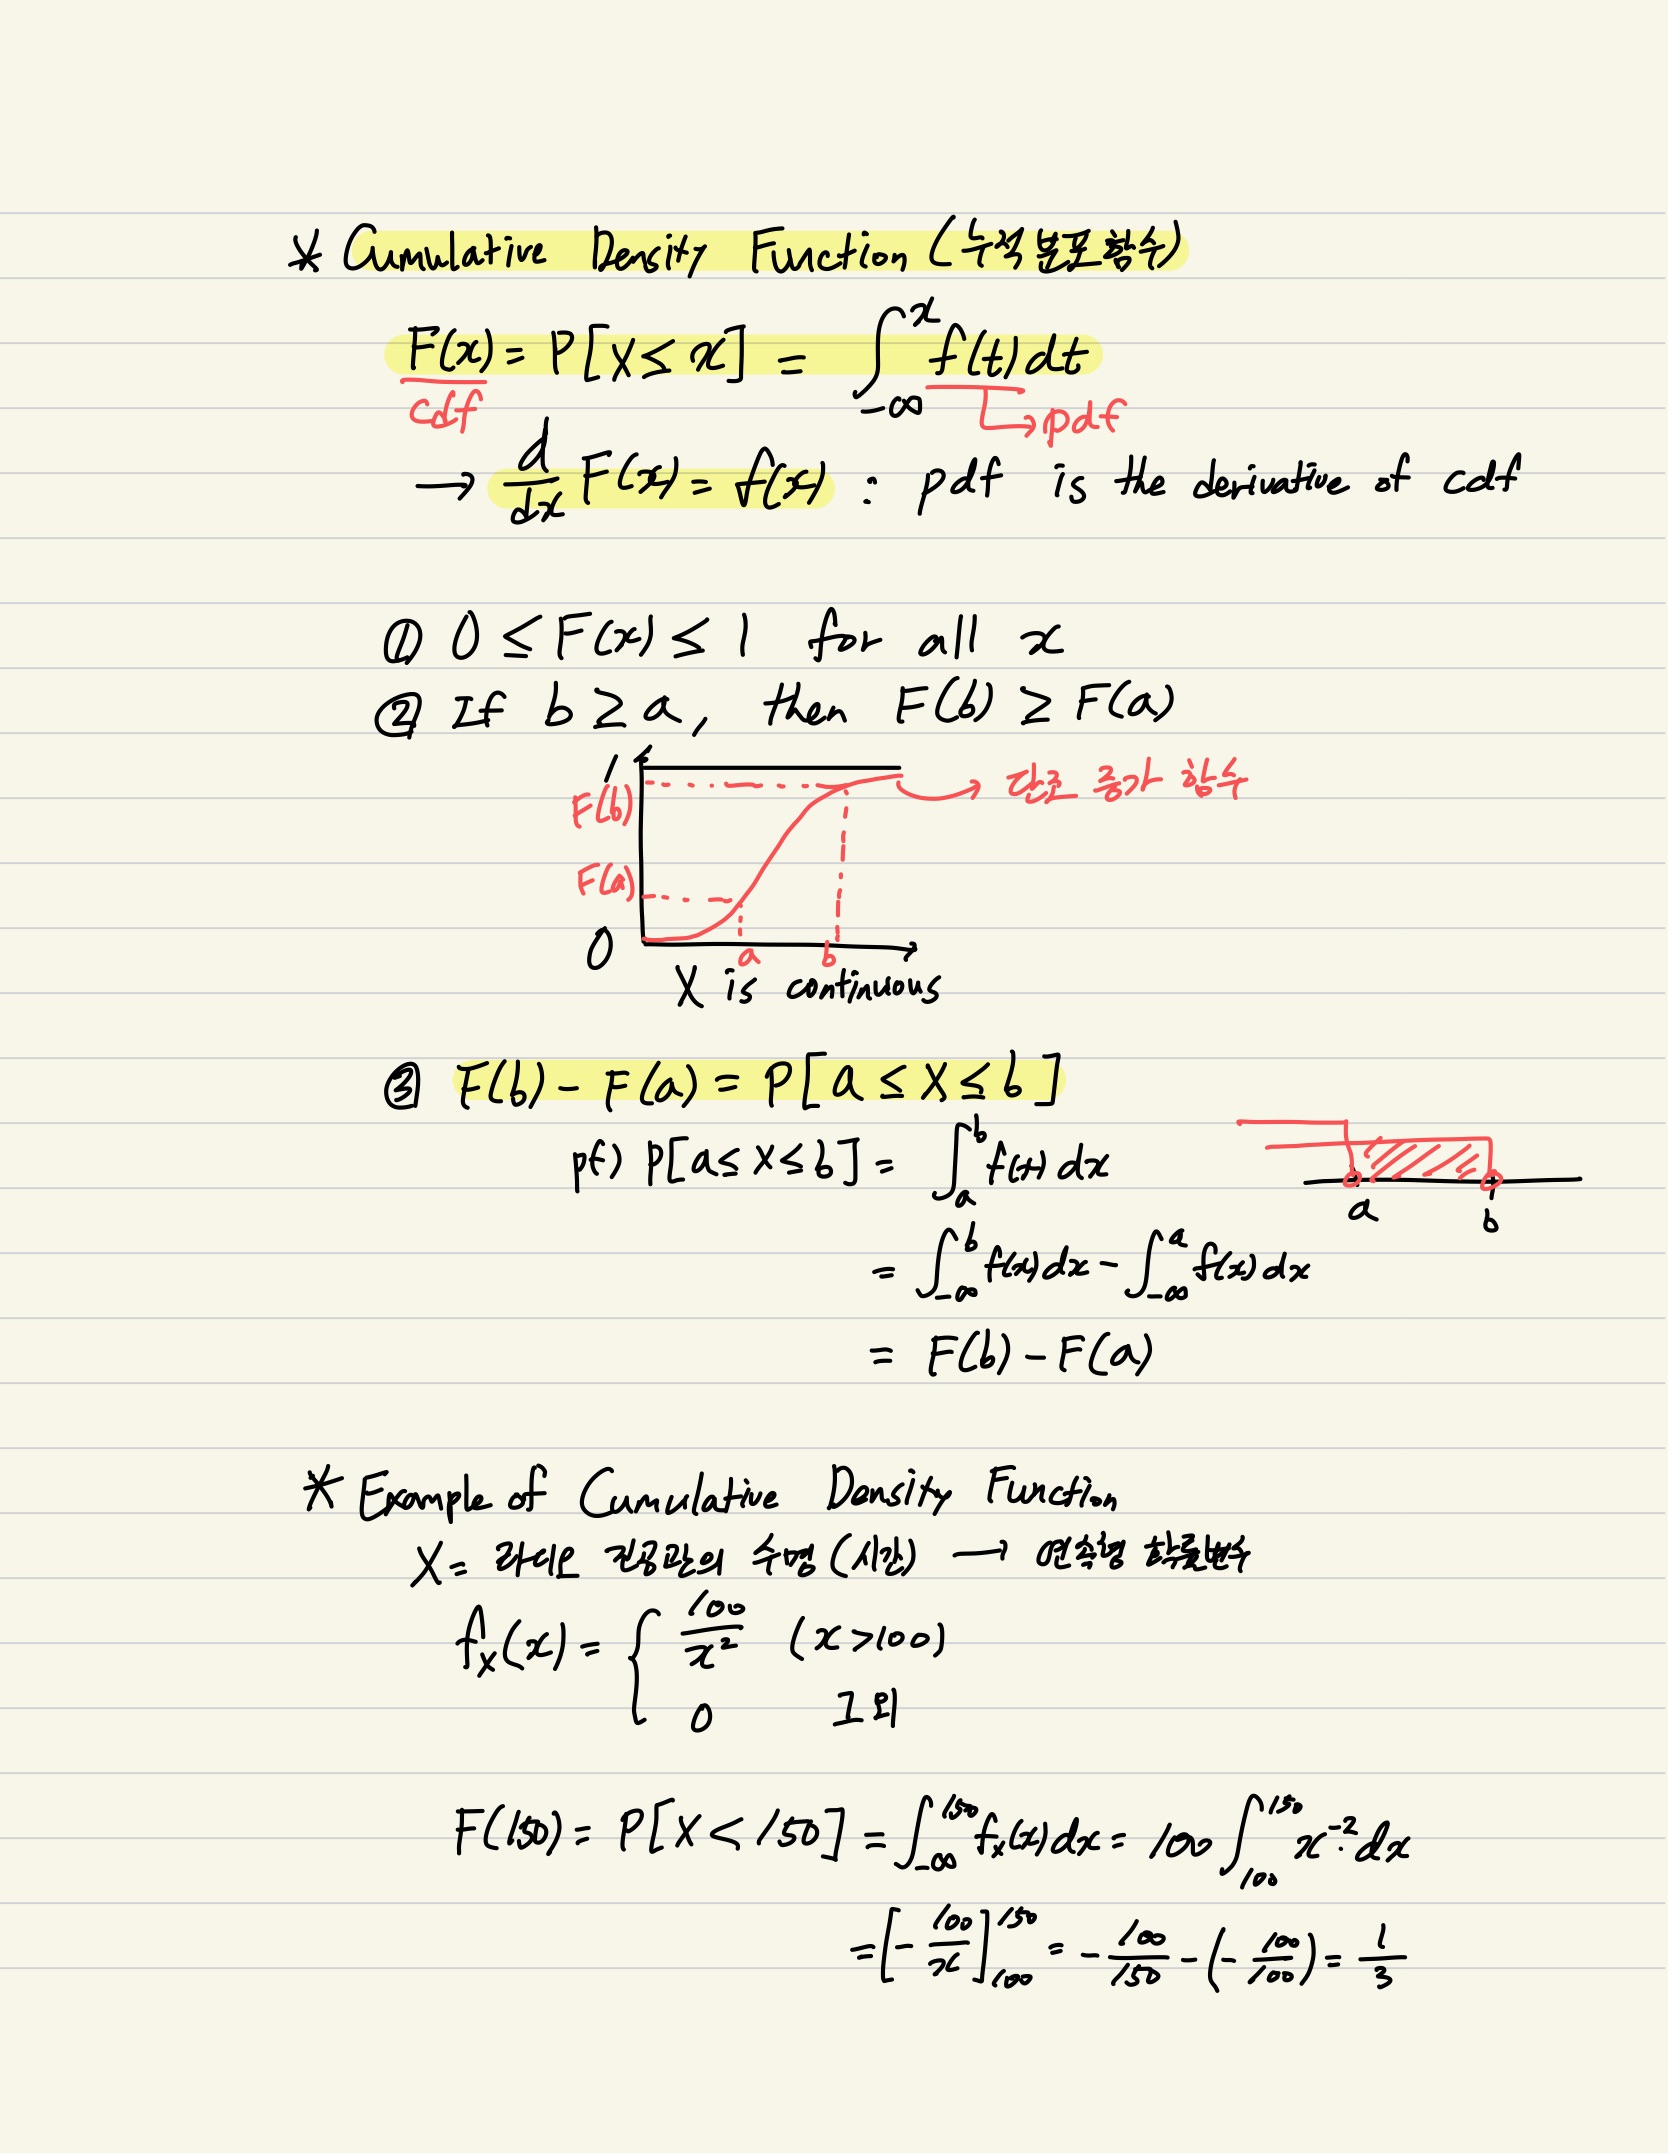 * Cumulative Density Function (누적분포함수)
F(x) = P[X ≤ x] = ∫_{-∞}^{x} f(t)dt
cdf
pdf
→ d/dx F(x) = f(x) : pdf is the derivative of cdf
① 0 ≤ F(x) ≤ 1 for all x
② If b ≥ a, then F(b) ≥ F(a)
1
F(b)
→ 단조 증가 함수
F(a)
0
a b
X is continuous
③ F(b) - F(a) = P[a ≤ X ≤ b]
pf) P[a ≤ X ≤ b] = ∫_{a}^{b} f(x) dx
a b
= ∫_{-∞}^{b} f(x)dx - ∫_{-∞}^{a} f(x)dx
= F(b) - F(a)
* Example of Cumulative Density Function
X = 라디오 진공관의 수명 (시간) → 연속형 확률변수
f_X(x) = { 100/x² (x>100)
0 그 외
F(150) = P[X < 150] = ∫_{-∞}^{150} f_X(x)dx = 100 ∫_{100}^{150} x^{-2} dx
= [- 100/x]_{100}^{150} = - 100/150 - (- 100/100) = 1/3